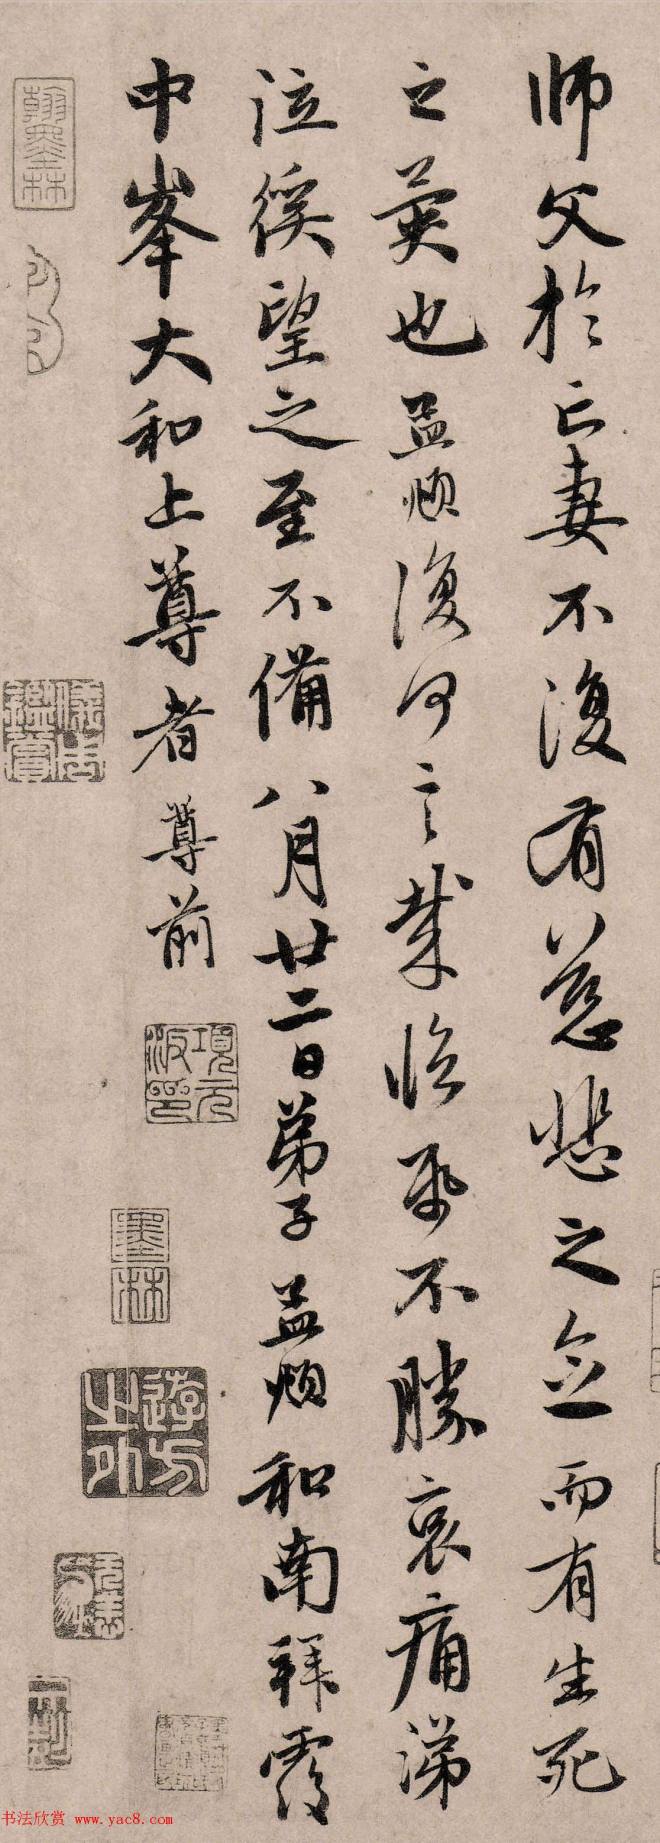 师父於亡妻不復有慈悲之念而有生死
之异也孟頫復何言哉临纸不勝哀痛涕
泣徯望之至不備八月廿二日弟子孟頫和南拜覆
中峯大和上尊者尊前
翰墨林
儀周鑑賞
項元汴印
墨林
遊方之外
书法欣赏 www.yac8.com